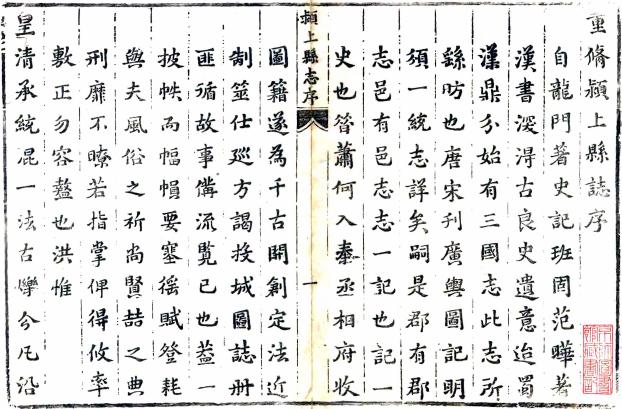 重脩潁上縣誌序
自龍門著史記班固范曄著
漢書深得古良史遺意迨蜀
漢鼎分始有三國志此志所
繇昉也唐宋刊廣輿圖記明
須一統志詳矣嗣是郡有郡
志邑有邑志志一記也記一
史也昝蕭何入秦丞相府收
潁上縣志序
一
圖籍遂為千古開創定法近
制筮仕巡方謁投城圖誌冊
匪循故事備流覧已也葢一
披帙而幅幀要塞徭賦登耗
與夫風俗之祈尚賢喆之典
刑靡不暸若指掌俾得攸率
敷正勿容盭也洪惟
皇清承統混一法古爍今凢沿